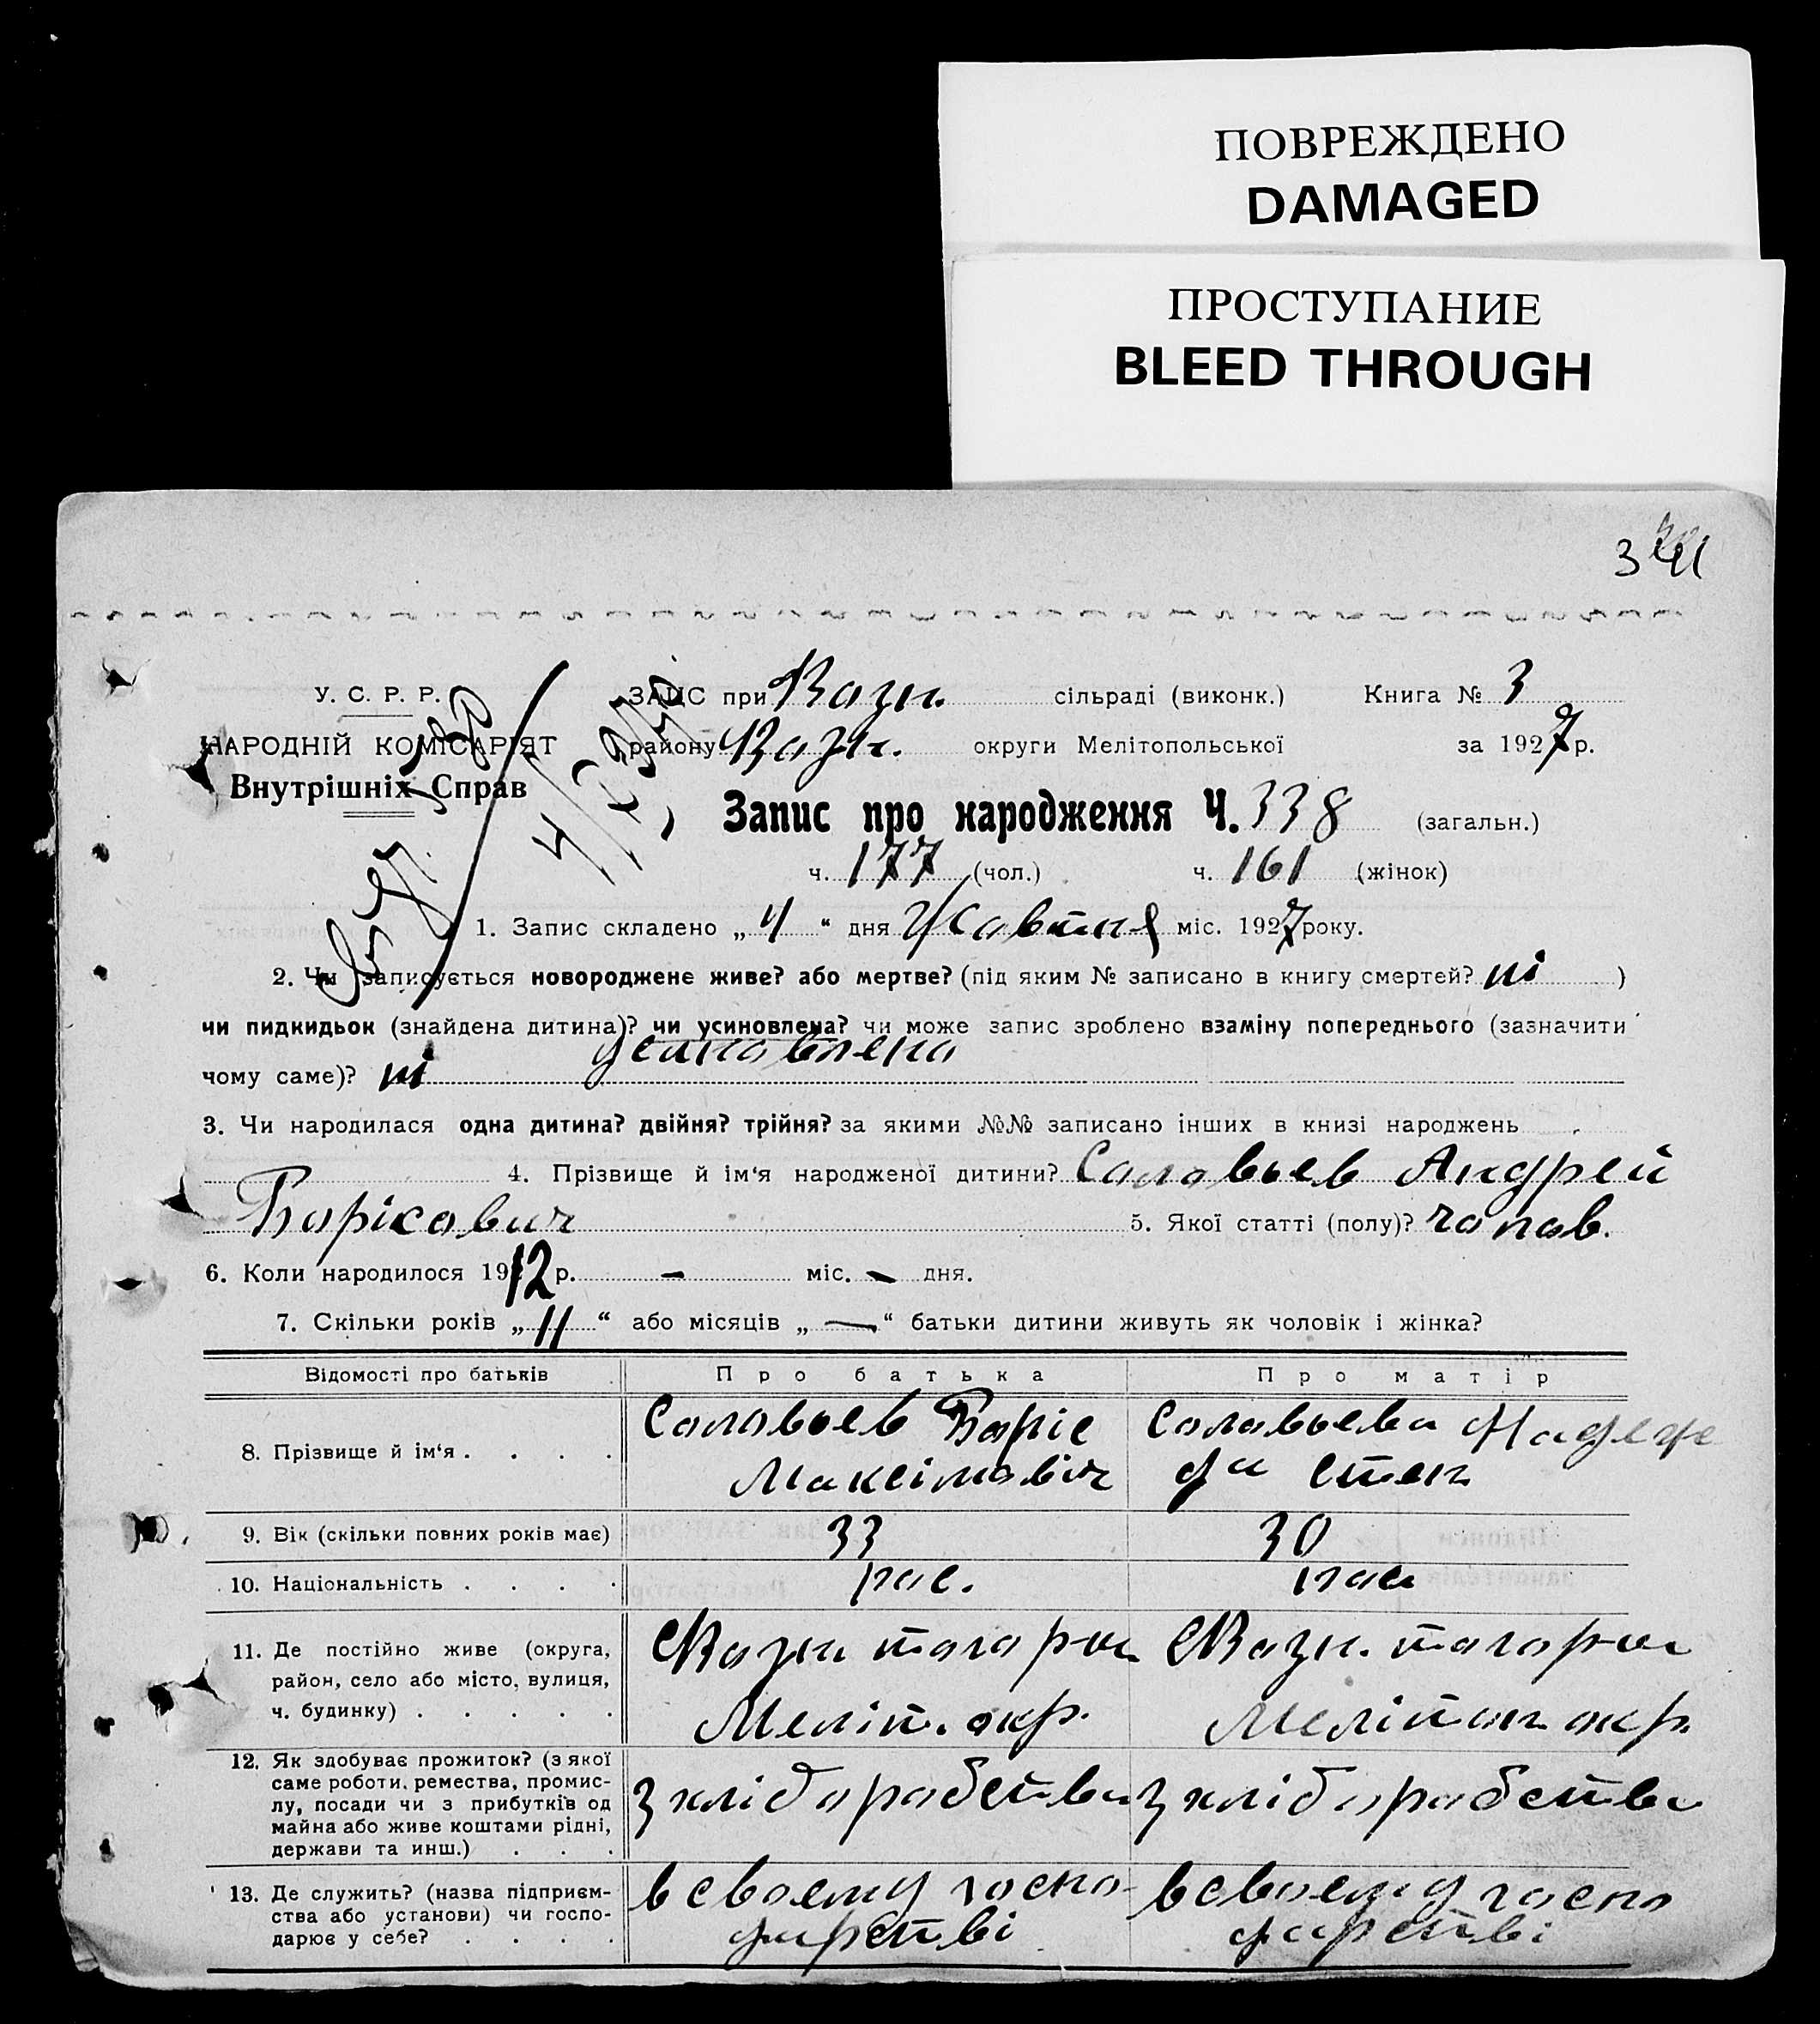 ПОВРЕЖДЕНО
DAMAGED
ПРОСТУПАНИЕ
BLEED THROUGH
У. С. Р. Р.
НАРОДНІЙ КОМІСАРІЯТ
Внутрішніх Справ
ЗАЦС при Вазн. сільраді (виконк.) Книга № 3
району Вазн. округи Мелітопольської за 1927 р.
Запис про народження Ч. 338 (загальн.)
ч. 177 (чол.) ч. 161 (жінок)
1. Запис складено „ 4 “ дня Жовтня міс. 1927 року.
2. Чи записується новороджене живе? або мертве? (під яким № записано в книгу смертей? ні )
чи пидкидьок (знайдена дитина)? чи усиновлена? чи може запис зроблено взаміну попереднього (зазначити
чому саме)? ні усиновлена
3. Чи народилася одна дитина? двійня? трійня? за якими №№ записано інших в книзі народжень
4. Прізвище й ім‘я народженої дитини? Соловьев Андрей
Борісович 5. Якої статті (полу)? чолов.
6. Коли народилося 1912 р. – міс. – дня.
7. Скільки років „ 11 “ або місяців „ — “ батьки дитини живуть як чоловік і жінка?
Відомості про батьків Про батька Про матір
8. Прізвище й ім‘я . . . . Соловьев Боріс Максімовіч Соловьева Надежда Степ
9. Вік (скільки повних років має) 33 30
10. Національність . . . . рос. рос
11. Де постійно живе (округа,
район, село або місто, вулиця,
ч. будинку) . . . . .
Меліт. окр. Мелітоп окр.
12. Як здобуває прожиток? (з якої
саме роботи, ремества, промис-
лу, посади чи з прибутків од
майна або живе коштами рідні,
держави та инш.) . . .
З хліборобства З хліборобства
13. Де служить? (назва підприєм-
ства або установи) чи госпо-
дарює у себе? . . . .
в своему госпо- в своему госпо
дарстві дарстві